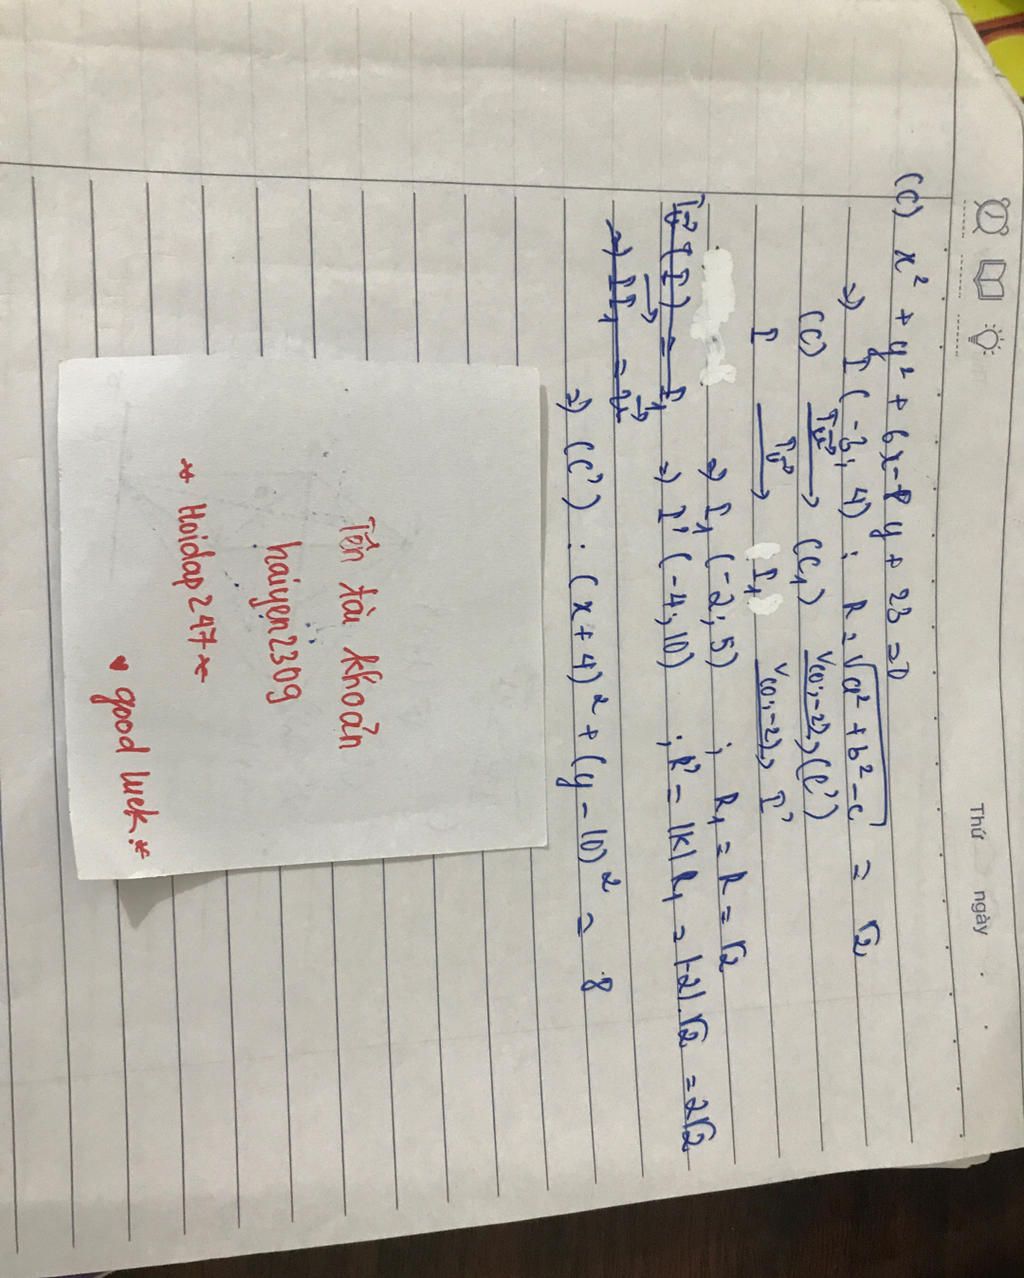 Thứ ngày
(C) x² + y² + 6x - 8y + 23 = 0
=) I (-3; 4) ; R = √(a² + b² - c) = √2
(C) T_u⃗ → (C₁) V(O;-2) → (C')
I T_u⃗ → I₁ V(O;-2) → I'
=) I₁ (-2; 5) ; R₁ = R = √2
T_u⃗ (I) = I₁ =) I' (-4; 10) ; R' = |k| R₁ = |-2|.√2 = 2√2
=) II₁⃗ = u⃗
=) (C') : (x + 4)² + (y - 10)² = 8
Tên tài khoản
haiyen2309
* Hoidap247 *
♥ good luck *